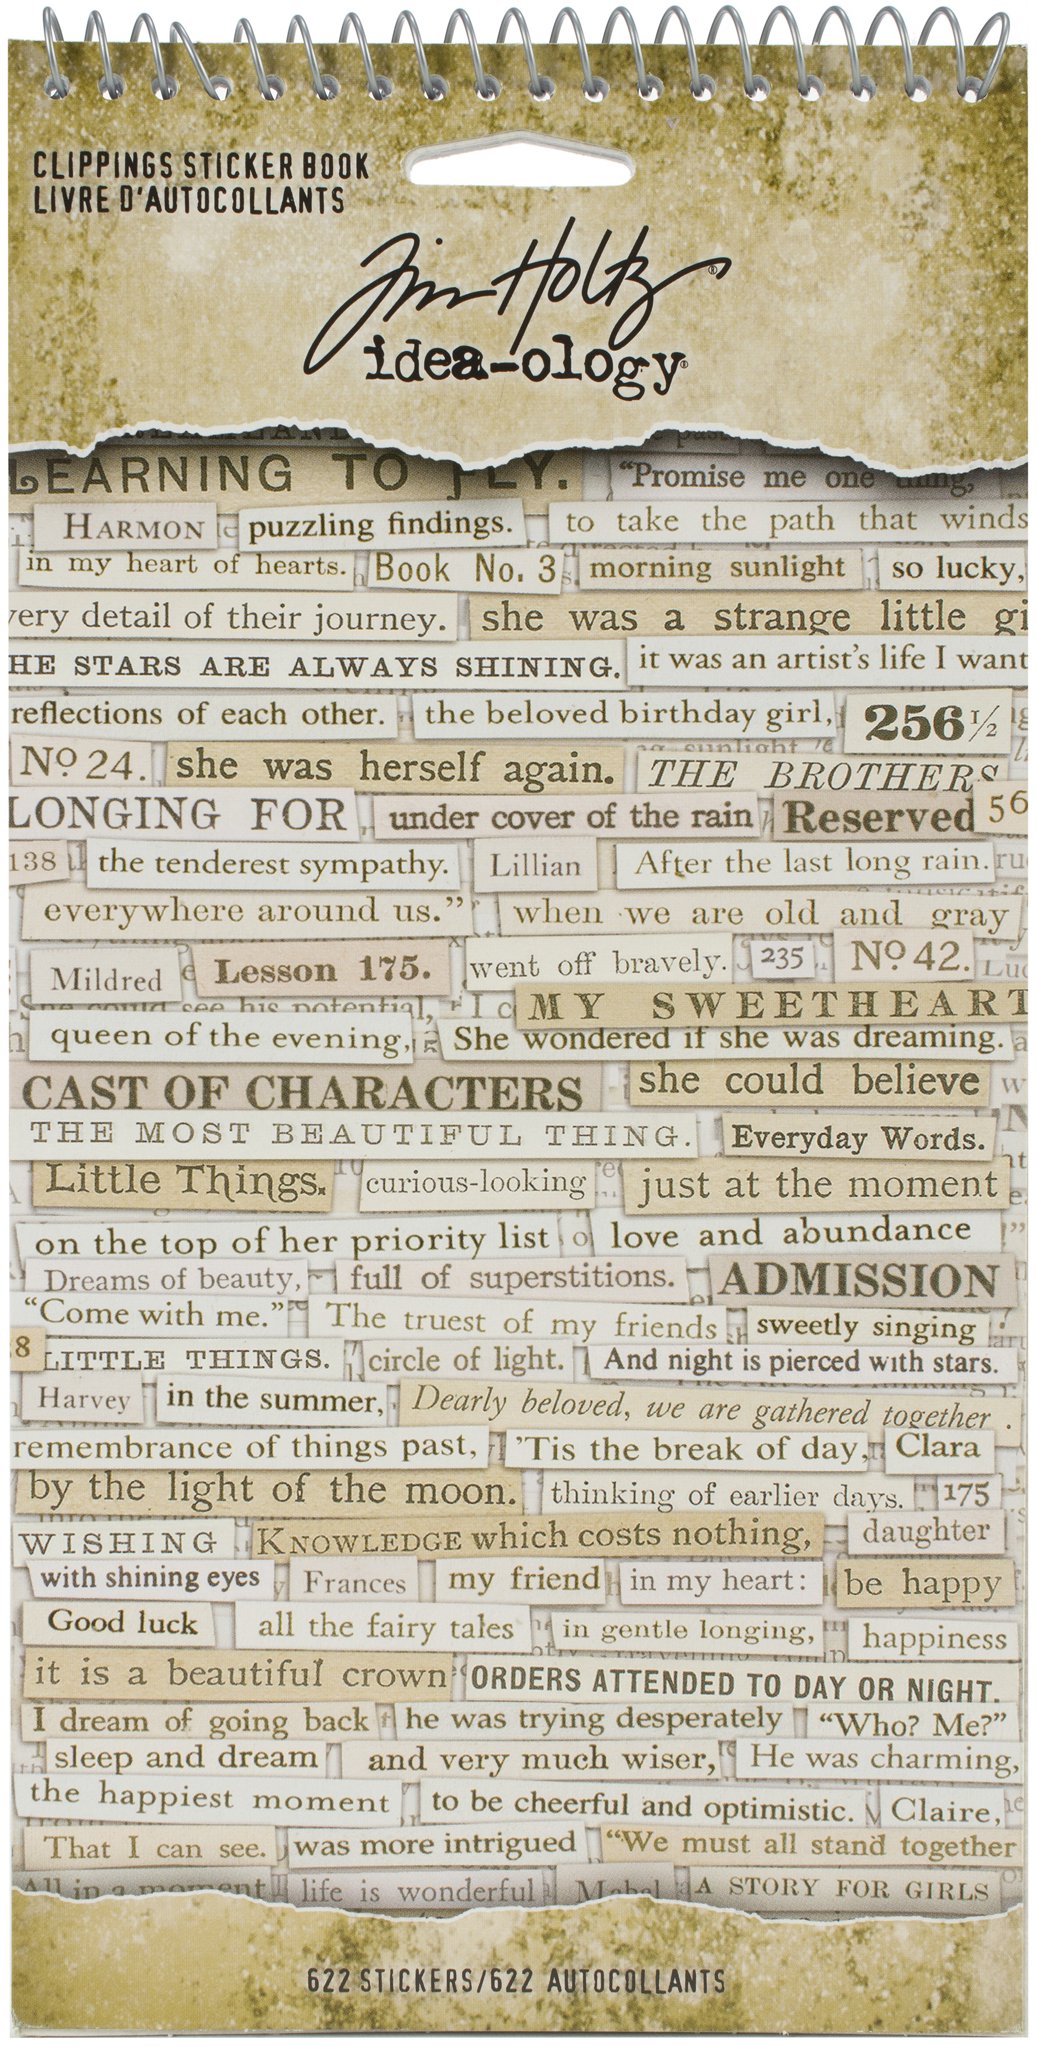 CLIPPINGS STICKER BOOK
LIVRE D'AUTOCOLLANTS
Tim Holtz®
idea-ology®
LEARNING TO FLY. "Promise me one thing,"
HARMON puzzling findings. to take the path that winds
in my heart of hearts. Book No. 3 morning sunlight so lucky,
very detail of their journey. she was a strange little gi
HE STARS ARE ALWAYS SHINING. it was an artist's life I want
reflections of each other. the beloved birthday girl, 256 1/2
No 24. she was herself again. THE BROTHERS
LONGING FOR under cover of the rain Reserved 56
138 the tenderest sympathy. Lillian After the last long rain.
everywhere around us." when we are old and gray
Mildred Lesson 175. went off bravely. 235 No 42.
She could see his potential, I MY SWEETHEART
queen of the evening, She wondered if she was dreaming.
CAST OF CHARACTERS she could believe
THE MOST BEAUTIFUL THING. Everyday Words.
Little Things. curious-looking just at the moment
on the top of her priority list love and abundance
Dreams of beauty, full of superstitions. ADMISSION
"Come with me." The truest of my friends sweetly singing
8 LITTLE THINGS. circle of light. And night is pierced with stars.
Harvey in the summer, Dearly beloved, we are gathered together .
remembrance of things past, 'Tis the break of day, Clara
by the light of the moon. thinking of earlier days. 175
WISHING KNOWLEDGE which costs nothing, daughter
with shining eyes Frances my friend in my heart: be happy
Good luck all the fairy tales in gentle longing, happiness
it is a beautiful crown ORDERS ATTENDED TO DAY OR NIGHT.
I dream of going back he was trying desperately "Who? Me?"
sleep and dream and very much wiser, He was charming,
the happiest moment to be cheerful and optimistic. Claire,
That I can see. was more intrigued "We must all stand together
All in a moment life is wonderful Mabel A STORY FOR GIRLS
622 STICKERS/622 AUTOCOLLANTS